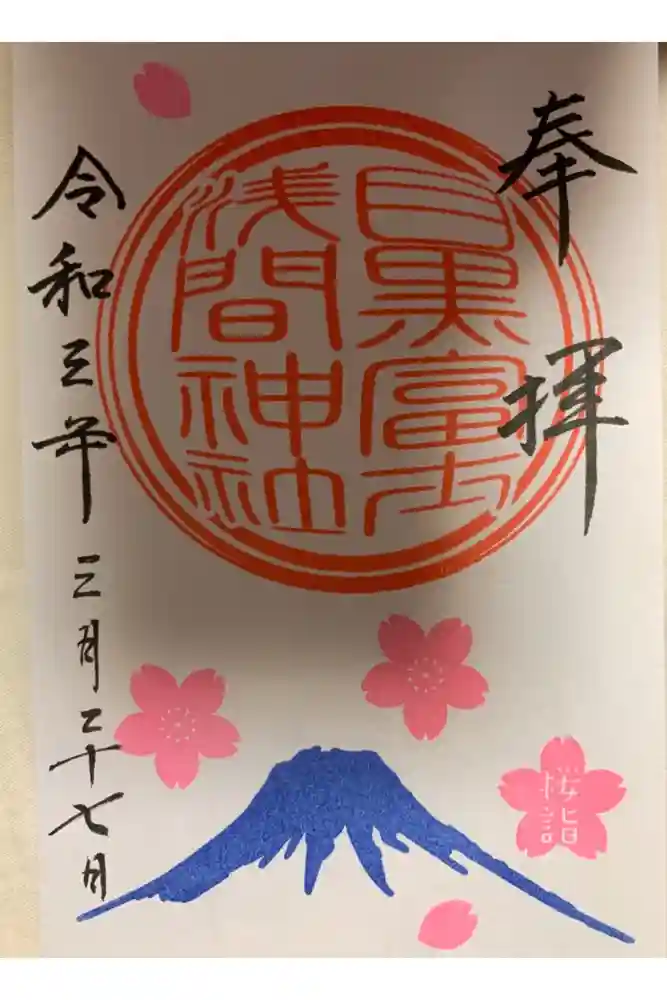 奉拝
目黒富士
浅間神社
令和三年三月二十七日
桜詣